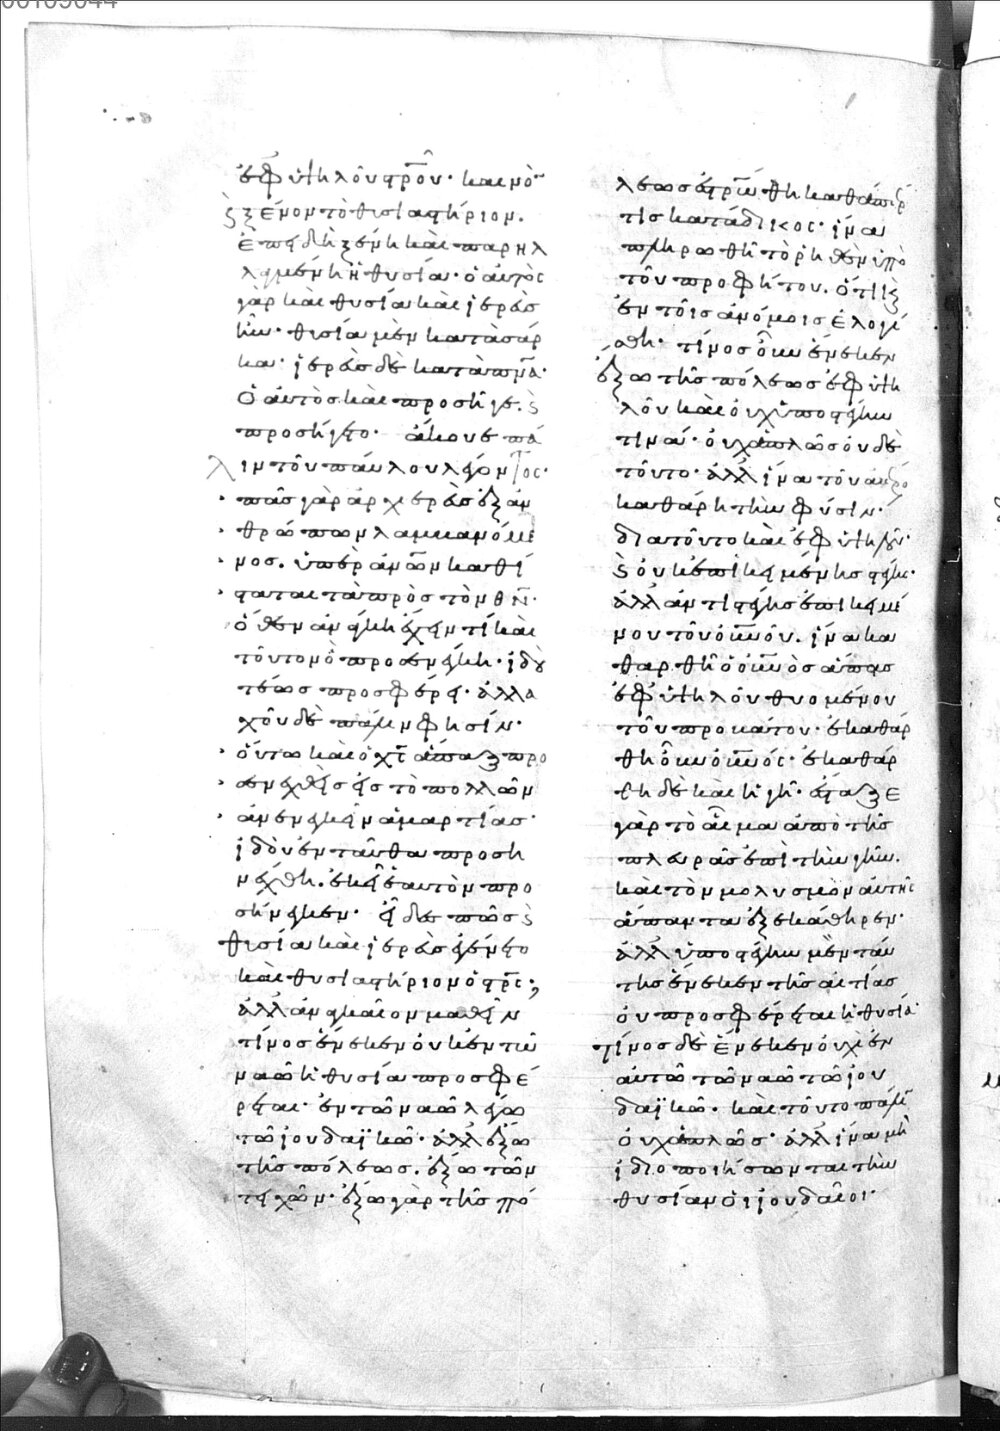 ἐφ' ὑψηλοῦ σταυροῦ· καινὸν
καὶ ξένον τὸ θυσιαστήριον.
ἐπειδὴ ξένη καὶ παρηλ
λαγμένη ἡ θυσία· ὁ αὐτὸς
γὰρ καὶ θυσία καὶ ἱερεὺς
ἦν· θυσία μὲν κατὰ σάρ
κα· ἱερεὺς δὲ κατὰ πνα·
ὁ αὐτὸς καὶ προσῆγε. καὶ
προσήγετο· ἄκουε πά
λιν τοῦ παύλου λέγοντος·
πᾶς γὰρ ἀρχιερεὺς ἐξ ἀν
θρώπων λαμβανόμε
νος. ὑπὲρ ἀνων καθί
σταται τὰ πρὸς τὸν θν·
ὅθεν ἀνάγκη ἔχειν τί καὶ
τοῦτον ὃ προσενέγκῃ· ἰδοὺ
τέως προσφέρει· ἀλλα
χοῦ δὲ πάλιν φησίν·
οὕτω καὶ ὁ χς ἅπαξ προ
σενεχθεὶς εἰς τὸ πολλῶν
ἀνενεγκεῖν ἁμαρτίας·
ἰδοὺ ἐνταῦθα προση
νέχθη. ἐκεῖ ἑαυτὸν προ
σήνεγκεν· εἶδες πῶς καὶ
θυσία καὶ ἱερεὺς ἐγένετο
καὶ θυσιαστήριον ὁ στς;
ἀλλ' ἀναγκαῖον μαθεῖν
τίνος ἕνεκεν οὐκ ἐν τῶ
ναῶ ἡ θυσία προσφέ
ρεται· ἐν τῶ ναῶ λέγω
τῶ ἰουδαϊκῶ· ἀλλ' ἔξω
τῆς πόλεως. ἔξω τῶν
τειχῶν· ἔξω γὰρ τῆς πό
λεως ἐστρώθη καθάπερ
τις κατάδικος· ἵνα
πληρωθῆ τὸ ῥηθὲν ὑπὸ
τοῦ προφήτου. ὅτι καὶ
ἐν τοῖς ἀνόμοις ἐλογί
σθη· τίνος οὖν ἕνεκεν
ἔξω τῆς πόλεως ἐφ' ὑψη
λοῦ καὶ οὐχ ὑπο στέγην
τινά· οὐχ ἁπλῶς οὐδὲ
τοῦτο· ἀλλ' ἵνα τοῦ ἀέρος
καθάρη τὴν φύσιν·
διατοῦτο καὶ ἐφ' ὑψηλοῦ·
καὶ οὐκ ἐπικειμένης στέγης·
ἀλλ' ἀντι στέγης ἐπικειμέ
νου τοῦ οὐνοῦ. ἵνα κα
θαρθῆ ὁ οὐνὸς ἅπας
ἐφ' ὑψηλοῦ θυομένου
τοῦ προβάτου· ἐκαθάρ
θη οὖν ὁ οὐνός· ἐκαθάρ
θη δὲ καὶ ἡ γῆ· ἔσταξε
γὰρ τὸ αἷμα ἀπὸ τῆς
πλευρᾶς ἐπὶ τὴν γῆν.
καὶ τὸν μολυσμὸν αὐτῆς
ἅπαντα ἐξεκάθηρεν·
ἀλλ' ὑπο στέγην μὲν ταύ
της ἕνεκεν τῆς αἰτίας
οὐ προσφέρεται ἡ θυσία·
τίνος δὲ ἕνεκεν οὐχὶ ἐν
αὐτῶ τῶ ναῶ τῶ ἰου
δαϊκῶ. καὶ τοῦτο πάλιν
οὐχ ἁπλῶς· ἀλλ' ἵνα μὴ
ἰδιοποιήσωνται τὴν
θυσίαν οἱ ἰουδαῖοι·